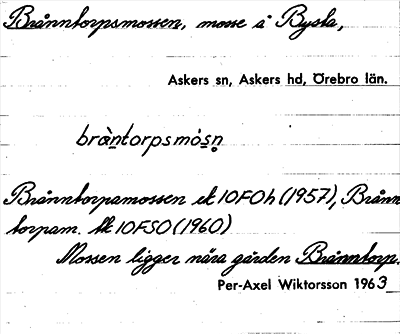 Brånntorpsmossen, mosse å Bysta,
Askers sn, Askers hd, Örebro län.
bràntorpsmósn
Brånntorpamossen ek 10FOh (1957), Brånn
torpam. tk 10FSO (1960)
Mossen ligger nära gården Brånntorp.
Per-Axel Wiktorsson 1963